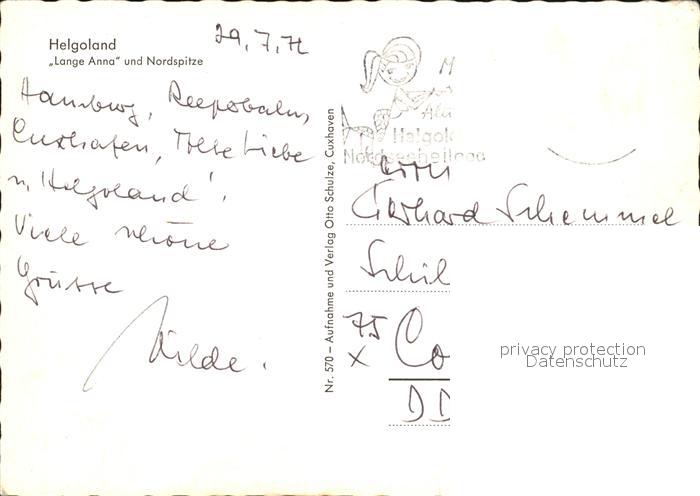 Helgoland
„Lange Anna“ und Nordspitze
29.7.72
Hamburg, Reeperbahn,
Cuxhafen, Tolle Liebe
n. Helgoland'.
Viele schöne
Grüsse
Hilde.
Nr. 570 – Aufnahme und Verlag Otto Schulze, Cuxhaven
Helgol
Nordseeheilbad
Herrn
Gerhard Schemmel
Schil
75
x Co
DD
privacy protection
Datenschutz